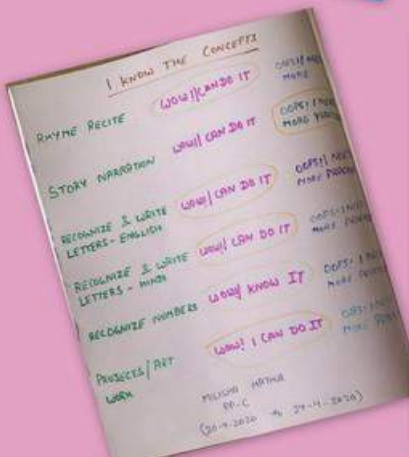 I KNOW THE CONCEPTS
RHYME RECITE WOW! I CAN DO IT OOPS! I NEED
MORE
STORY NARRATION WOW! I CAN DO IT OOPS! I NEED
MORE
RECOGNIZE & WRITE
LETTERS - ENGLISH WOW! I CAN DO IT OOPS! I NEED
MORE
RECOGNIZE & WRITE
LETTERS - HINDI WOW! I CAN DO IT OOPS! I NEED
MORE
RECOGNIZE NUMBERS WOW! I KNOW IT OOPS! I NEED
MORE
PROJECTS/ART
WORK WOW! I CAN DO IT OOPS! I NEED
MORE
PP-C